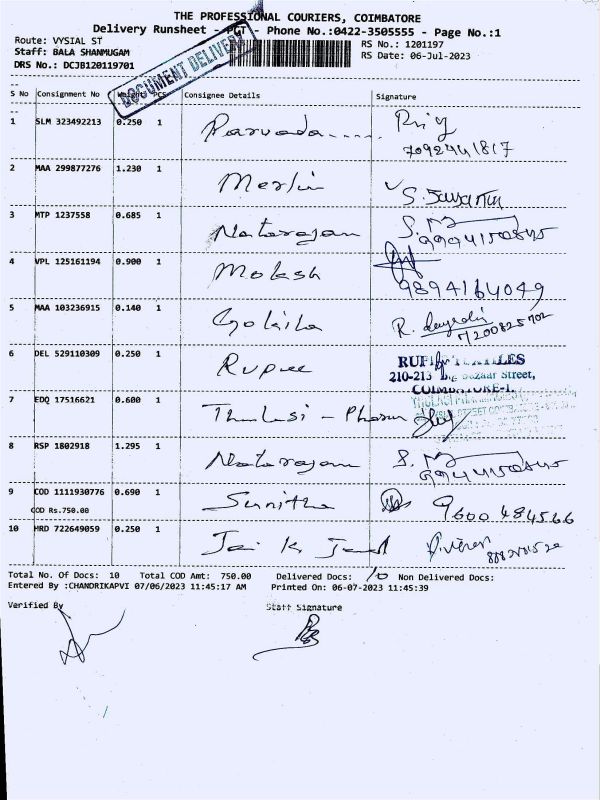 THE PROFESSIONAL COURIERS, COIMBATORE
Delivery Runsheet - PGT - Phone No.:0422-3505555 - Page No.:1
Route: VYSIAL ST
RS No.: 1201197
Staff: BALA SHANMUGAM
RS Date: 06-Jul-2023
DRS No.: DCJB120119701
DOCUMENT DELIVERY
S No Consignment No Weight PCS Consignee Details Signature
1 SLM 323492213 0.250 1 Parvada.....
7092441817
2 MAA 299877276 1.230 1 Merlin
3 MTP 1237558 0.685 1 Natarajan
4 VPL 125161194 0.900 1 Moksh
9894164049
5 MAA 103236915 0.140 1 Gokila R.
7200825702
6 DEL 529110309 0.250 1 Rupee
210-213 Big Bazaar Street,
COIMBATORE-1.
7 EDQ 17516621 0.600 1 Thulasi - Pharm
8 RSP 1802918 1.295 1 Natarajan
9 COD 1111930776 0.690 1 Sunitha 9600484566
COD Rs.750.00
10 HRD 722649059 0.250 1 Jai
Total No. Of Docs: 10 Total COD Amt: 750.00 Delivered Docs: 10 Non Delivered Docs:
Entered By :CHANDRIKAPVI 07/06/2023 11:45:17 AM Printed On: 06-07-2023 11:45:39
Verified By Staff Signature